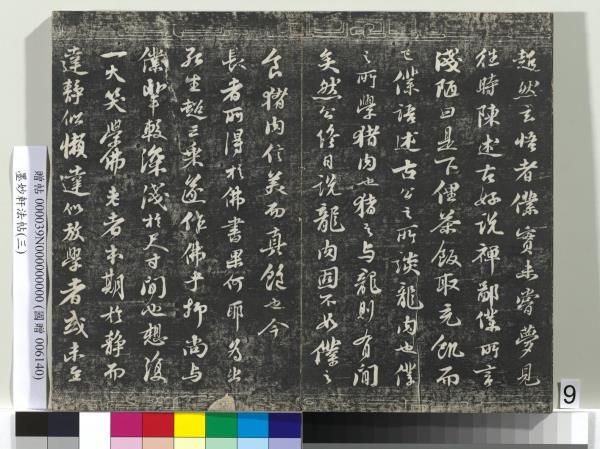 超然玄悟者僕實未嘗夢見
往時陳述古好說禪鄙僕所言
淺陋曰是下俚茶飯取充飢而
已僕語述古公之所談龍肉也僕
之所學猪肉也猪之與龍則有間
矣然公終日說龍肉固不如僕之
食猪肉信美而真飽也今
長者所得於佛書果何耶為出
死生超三乘遂作佛乎抑尚與
僕輩較深淺於尺寸間也想復
一大笑學佛老者本期於靜而
達靜似懶達似放學者或未至
贈帖 000039N000000000 (國贈 006140)
墨妙軒法帖(三)
9